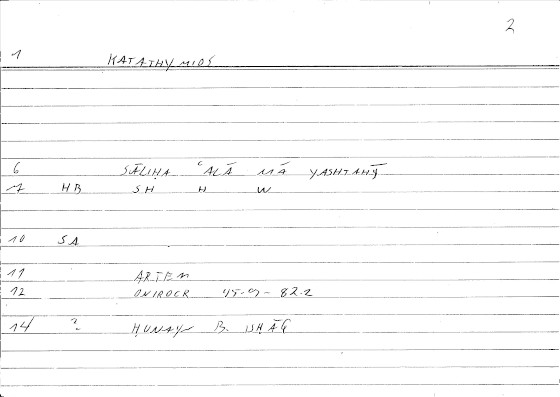 2
1 KATATHYMIOS
6 SĀLIḤA ʿALĀ MĀ YASHTAHĪ
7 HB SH H W
10 SA
11 ARTEM
12 ONIROCR 45.9-82.2
14 ? ḤUNAYN B. ISḤĀQ